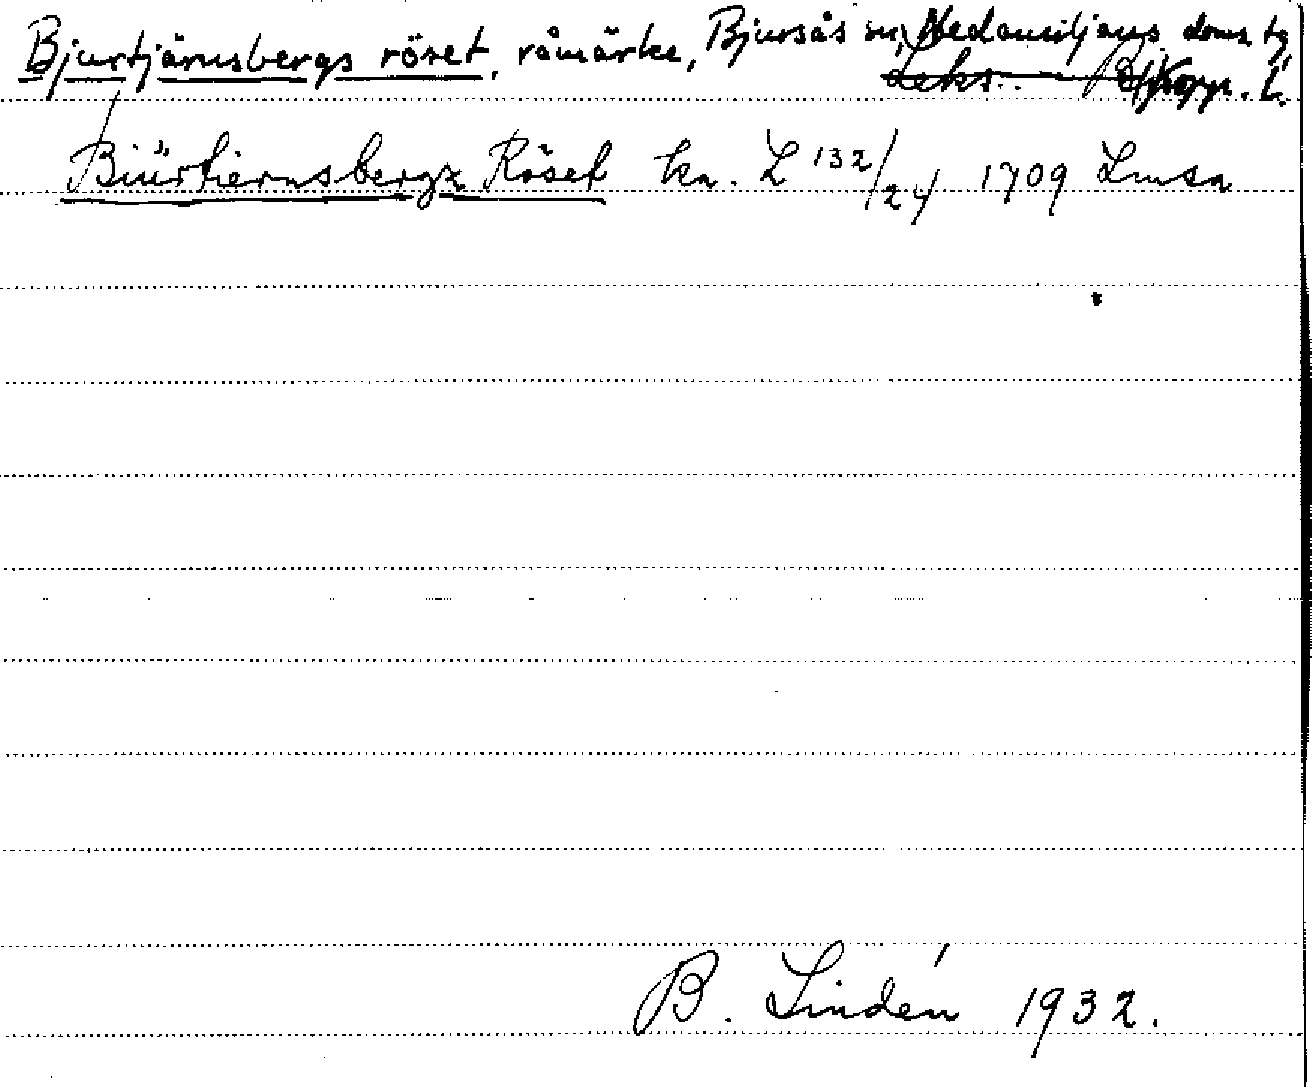 Bjurtjärnsbergs röset, råmärke, Bjursås sn, Nedansiljans doms. tg
Leks. Kopp. L.
Biürtiernsbergz Röset ka. L 132/24 1709 Lmsa
B. Lindén 1932.